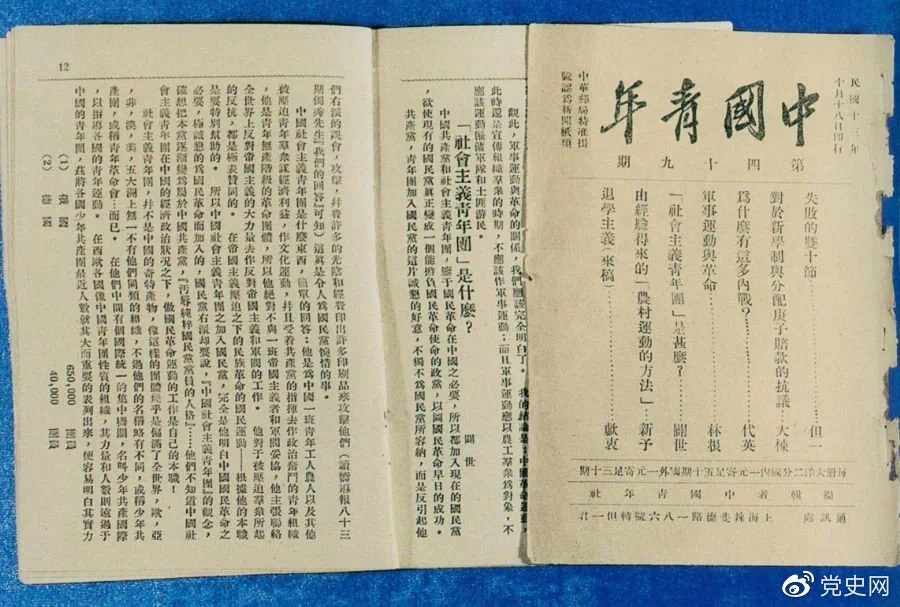 民國十三年
十月十八日印行
中國青年
第四十九期
中華郵局特准掛
號認為新聞紙類
失敗的雙十節⋯⋯但一
對於新學制與分配庚子賠款的抗議⋯大悚
爲什麽有這多內戰？⋯⋯代英
軍事運動與革命⋯⋯林根
「社會主義青年團」是甚麽？⋯⋯闢世
由經驗得來的「農村運動的方法」⋯新予
退學主義（來稿）⋯⋯獻衷
每期大洋二分國內一元寄足五十期國外一元寄足三十期
編輯者中國青年社
通訊處 上海辣斐德路一八六號轉但一君
觀此，軍事運動與革命的關係，我們應該完全明白了。我的結論是：中國革命運動，
此時還是宣傳組織羣衆的時期，不應該作軍事運動；而且軍事運動應以農工羣衆爲對象，不
應該運動僱傭軍隊和土匪游民。
「社會主義青年團」是什麽？
闢世
中國共產黨和社會主義青年團，鑒于國民革命在中國之必要，所以都加入現在的國民黨
，欲使現有的國民黨眞正變成一個能擔負國民革命使命的政黨，以圖國民革命早日的成功。
共產黨，青年團加入國民黨的這片誠懇的好意，不獨不爲國民黨所容納，而是反引起他
12
們右派的誤會，攻擊，幷費許多的光陰和經費印出許多印刷品來攻擊他們（讀嚮導報八十三
期獨秀先生『我們的回答』可知）這眞是令人爲國民黨惋惜的事。
中國社會主義青年團是什麽東西，簡單的回答：他是爲中國一班青年工人農人以及其他
被壓迫青年羣衆謀經濟利益，作文化運動，幷且受着共產黨的指揮去作政治奮鬥的青年組織
，他是青年無產階級的革命團體，所以他絕對不與一班帝國主義者和軍閥妥協，他主張聯絡
全世界上反對帝國主義的大力量去作反對帝國主義和軍閥的工作。他對于被壓迫羣衆所起
的反抗，都是極表贊同的。在帝國主義壓迫之下的民族革命的國民運動——根據他的本職
是要特別幫助的。所以中國社會主義青年團之加入國民黨，完全是他明白中國國民革命之
必要，極誠懇的爲國民革命而加入的，國民黨右派却要說，『中國社會主義青年團』的觀念，
確想把本黨逐漸變爲屬於中國共產黨，『汚辱純粹國民黨黨員的人格』⋯⋯他們不知道中國社
會主義青年團在中國的經濟政治狀況之下，做國民革命運動的工作是自己的本職！
社會主義青年團，幷不是中國的奇特產物，像這樣的團體幾乎是偏滿了全世界，歐，亞
，非，澳，美，五大洲上無一不有他們同類的組織，不過他們的名稱略有不同，或稱少年共
產團，或稱青年革命會⋯⋯而已。在他們中間有個國際統一的集中機關，名叫少年共產國際
，以指導各國的青年運動。在西歐各國像中國青年團性質的組織，其力量和人數則遠過于
中國的青年團，茲將各國少年共產團最近人數就其大而重要的表列出來，便容易明白其實力
(1) 650,000 團員
(2) 40,000 團員
党史网